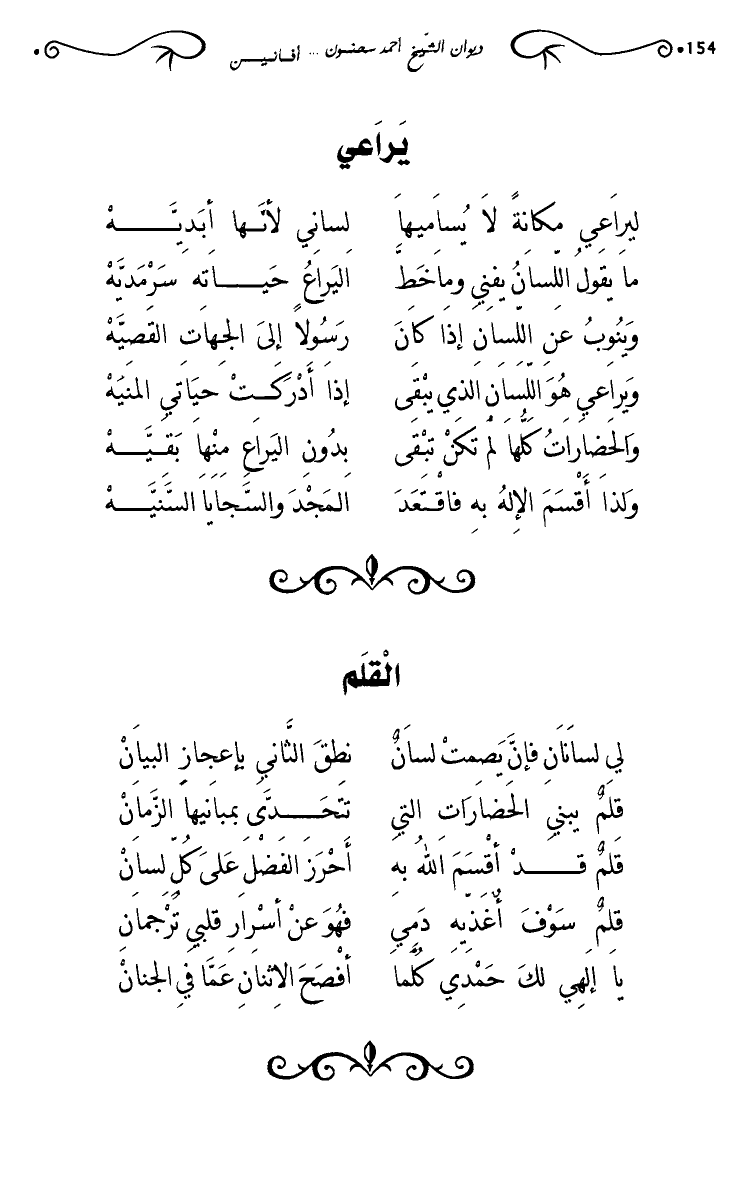 154 ديوان الشّيخ أحمد سحنون ... أفانيـــن
يَراَعي
لِيرَاعِي مكانةً لاَ يُساَمِيهاَ لِسانِي لأنَّــها أبَدِيَّــــــهْ
ما يَقولُ اللّسانُ يفنِي وماخَطَّ اليَراعُ حَيَــــاته سَرْمَديَّهْ
وَيَنُوبُ عنِ اللّسانِ إذا كانَ رَسُولاً إلىَ الجِهاتِ القصِيَّهْ
وَيراعي هُوَ اللّسَانِ الذي يبْقَى إذا أَدْرَكَــتْ حيَاتي المنيَهْ
وَالحضَاراتُ كلُّها لمْ تكنْ تبْقَى بِدُونِ اليَراعِ مِنْهَا بَقِيَّــــهْ
وَلذا أَقْسَمَ الإلهُ بهِ فاقْــتَعَدَ المَجْدَ والسَّجَايا السَّنيَّــــهْ
الْقلَم
لِي لسانَانِ فإنَّ يَصمتْ لسانٌ نطقَ الثَّاني بإعجازِ البيانْ
قلمٌ يبنيِ الحضارَاتِ التيِ تتَحَــــدَّى بمبانيهَا الزَّمانْ
قلمٌ قــــــدْ أقْسَمَ اللهُ بهِ أحْرَزَ الفَضْلَ عَلىَ كلِّ لِسانْ
قلمٌ سَوْفَ أُغَذّيهِ دَمِي فهُوَ عنْ أسْرارِ قلبيِ تُرْجمانِ
ياَ إلهِي لكَ حَمْدِي كلَّماَ أفْصَحَ الاِثنانِ عَمَّا فيِ الجنانْ